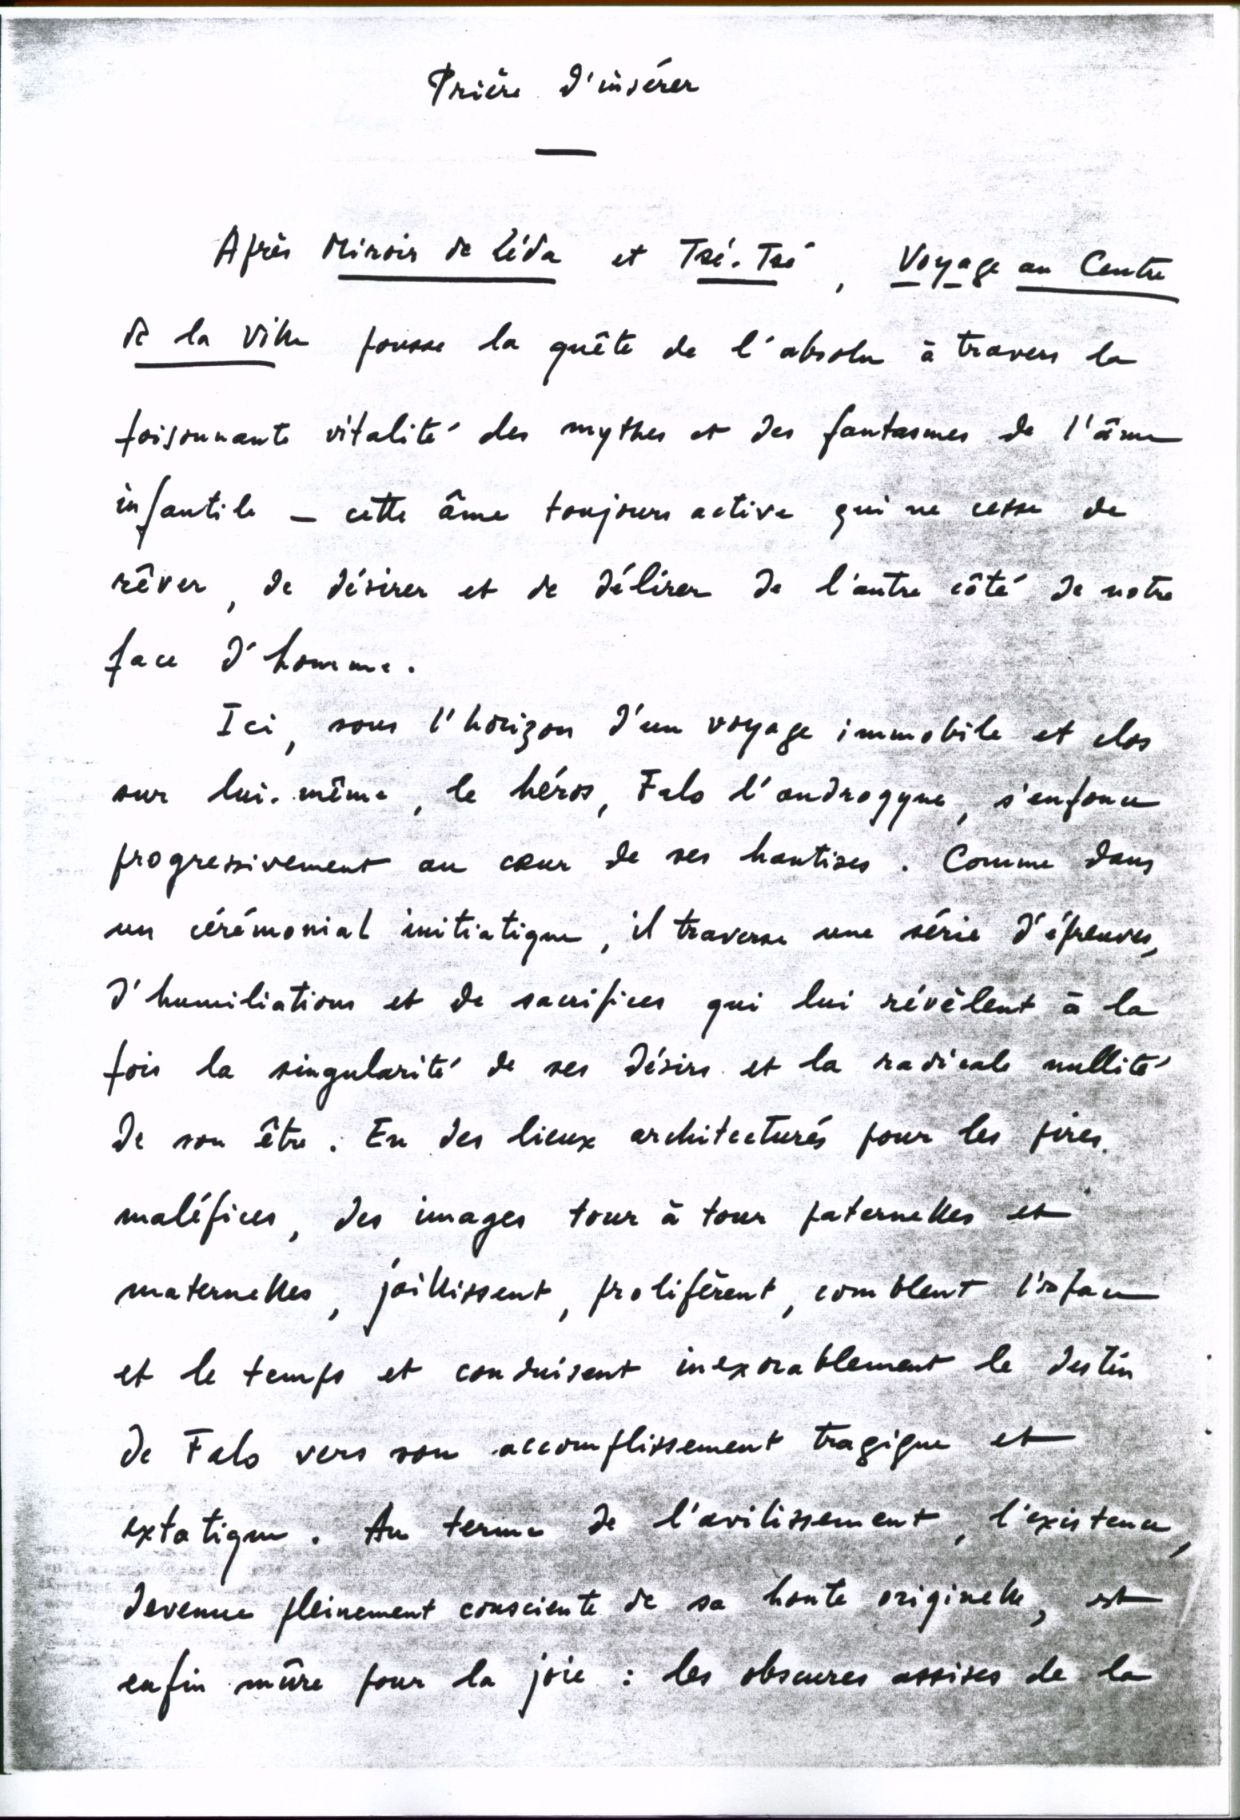 Prière d'insérer
Après Miroir de Léda et Tsé-Tsé, Voyage au Centre
de la Ville pousse la quête de l'absolu à travers la
foisonnante vitalité des mythes et des fantasmes de l'âme
infantile – cette âme toujours active qui ne cesse de
rêver, de désirer et de délirer de l'autre côté de notre
face d'homme.
Ici, sous l'horizon d'un voyage immobile et clos
sur lui-même, le héros, Falo l'androgyne, s'enfonce
progressivement au cœur de ses hantises. Comme dans
un cérémonial initiatique, il traverse une série d'épreuves,
d'humiliations et de sacrifices qui lui révèlent à la
fois la singularité de ses désirs et la radicale nullité
de son être. En des lieux architecturés pour les pires
maléfices, des images tour à tour paternelles et
maternelles, jaillissent, prolifèrent, comblent l'espace
et le temps et conduisent inexorablement le destin
de Falo vers son accomplissement tragique et
extatique. Au terme de l'avilissement, l'existence,
devenue pleinement consciente de sa honte originelle, est
enfin mûre pour la joie : les obscures assises de la